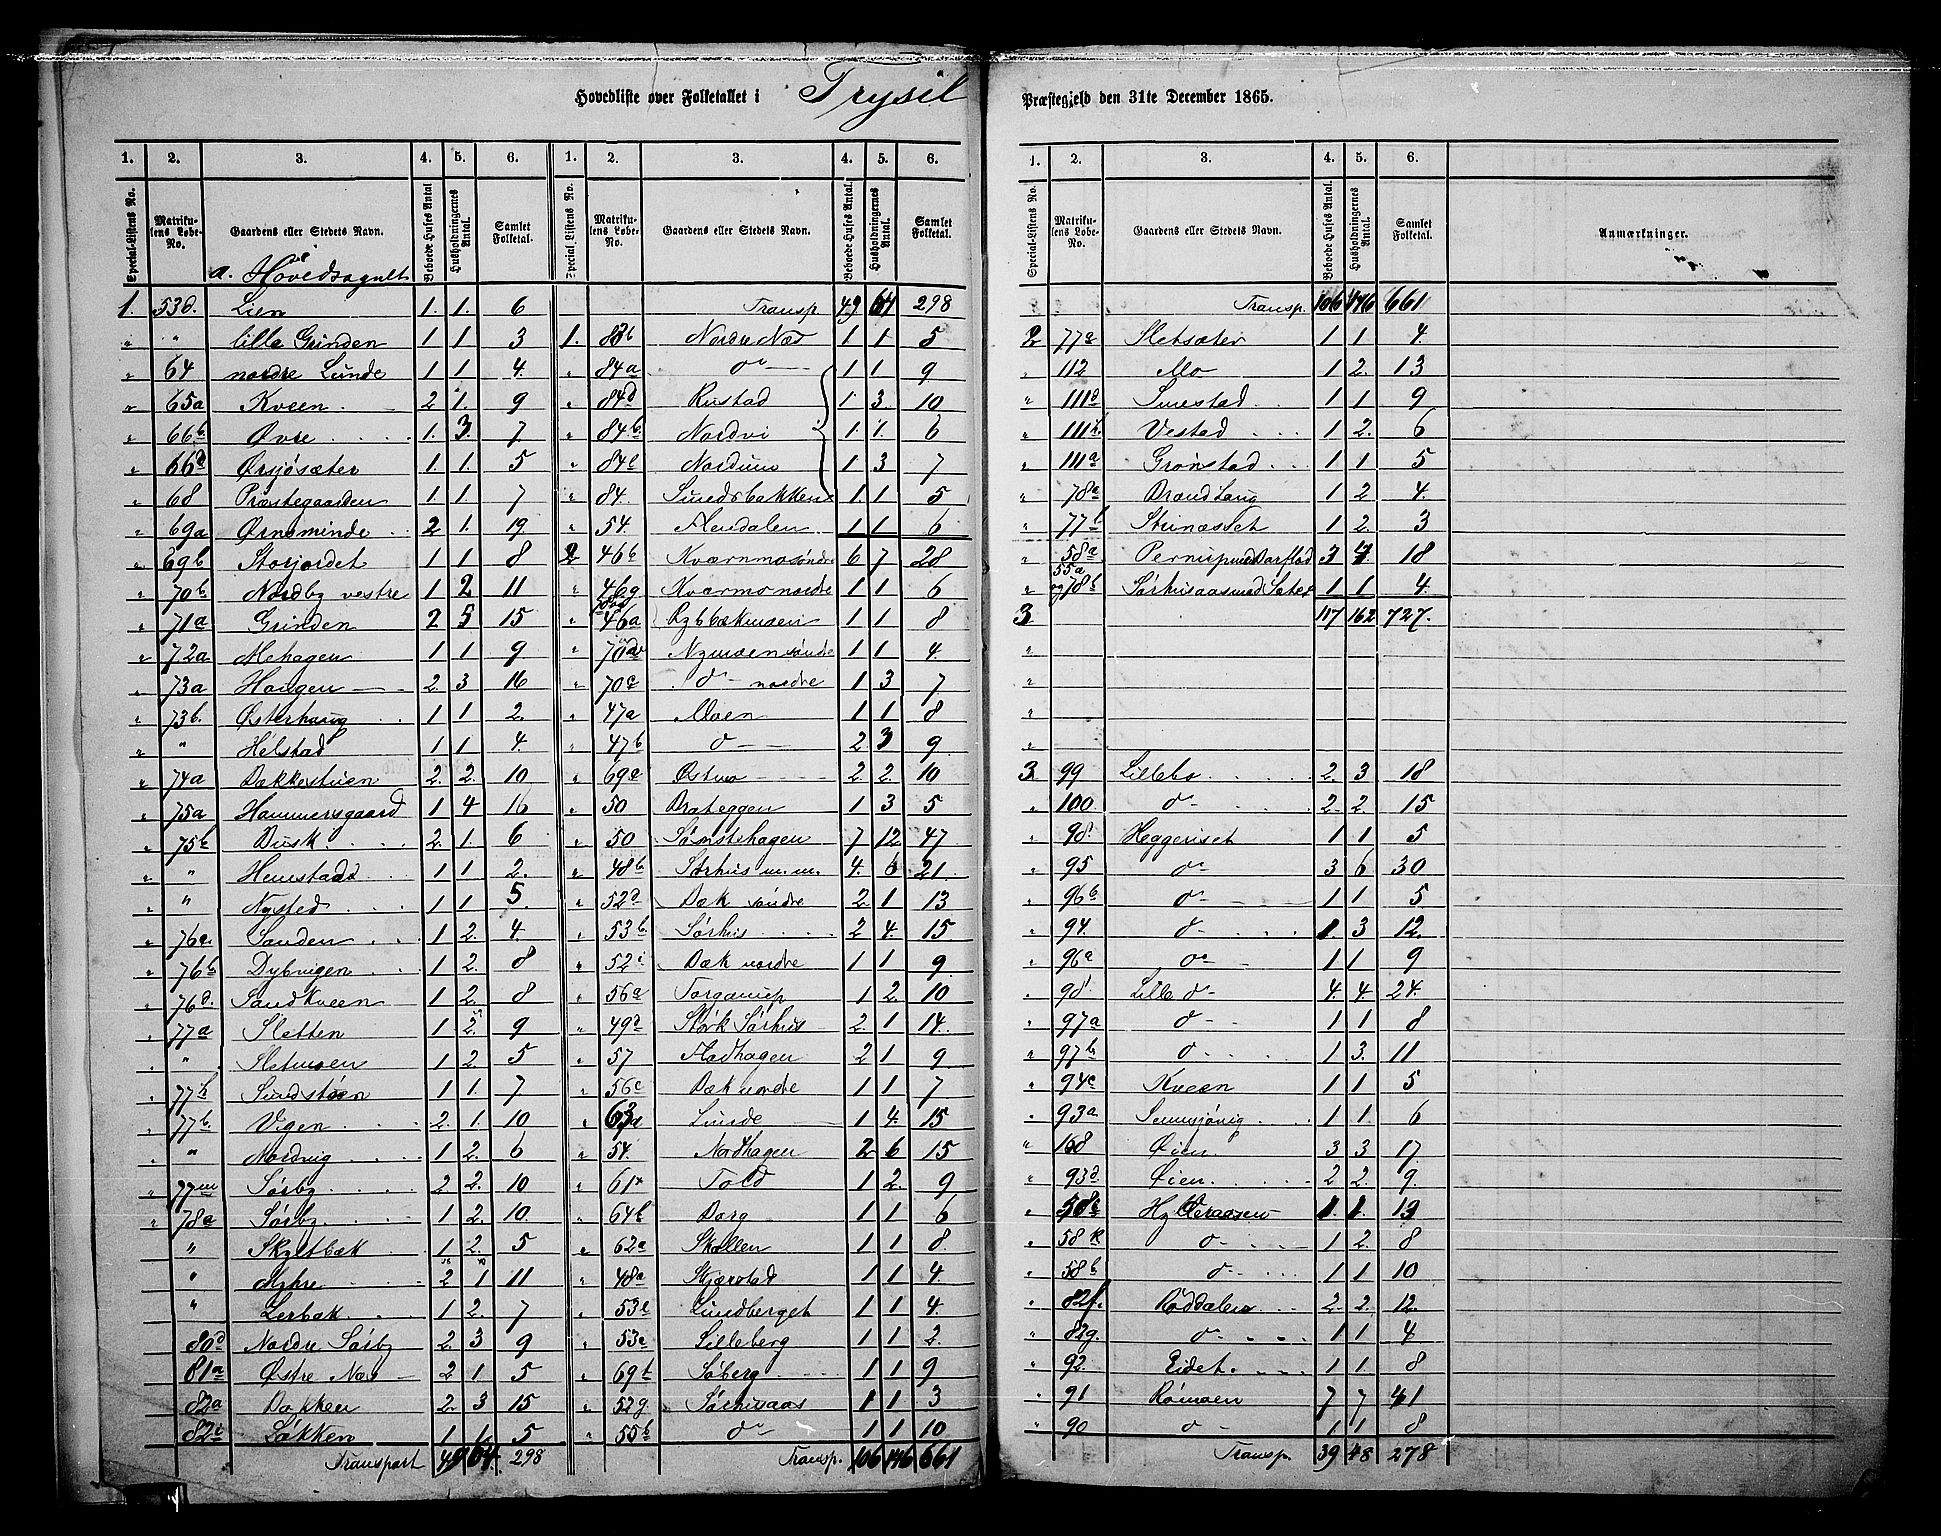 Hovedliste over Folketallet i Trysil Præstegjeld den 31te December 1865.
1. 2. 3. 4. 5. 6.
Special-Listens No. Matrikulens Løbe-No. Gaardens eller Stedets Navn. Beboede Huses Antal. Husholdningernes Antal. Samlet Folketal.
a. Hovedsognet
1. 53d. Lien 1. 1. 6
" " lille Grinden 1 1 3
" 64 nordre Lunde 1 1 4.
" 65a Kveen 2 1. 9
" 66b Øvre 1. 3. 7
" 66a Ørsjøsæter 1. 1. 5
" 68 Præstegaarden 1. 1 7
" 69a Ørnsminde 2 1. 19
" 69b Storjordet 1 1 8
" 70b Nordby vestre 1 2 11
" 71a Grinden 2 5 15
" 72a Mehagen 1 1 9
" 73a Haugen 2. 3 16
" 73b. Østerhaug 1 1 2.
" " Helstad 1 1 4.
" 74a Bakkestuen 2. 2. 10
" 75a Hammersgaard 1 4 16
" 75b Busk 2. 1. 6
" " Hemstad 1 1 2.
" " Nysted 1 1 5.
" 76a. Sanden 1 2. 4.
" 76b Dybvigen 1 2. 8
" 76d. Sandkveen 1 2. 8
" 77a Sletten 1 2. 9
" " Sletmoen 1 2. 5
" 77b Sundstøen 1 1. 7
" 77b. Vigen 2. 1. 10
" " Nordvig 1 2. 6
" 77m Sørby 2 2. 10
" 78a Sørby 1 2. 10.
" Skytbæk 1 2. 5
" Myhre 2 1 11
" Lerbak 1 2. 7
80d Nordre Sørby 2. 3 9
81a Østre Næs 2 1 5
82a Bakken 2. 3 15
82c Løkken 1 1. 5
Transport 49 64. 298
1. 2. 3. 4. 5. 6.
Special Listens No. Matrikulens Løbe-No. Gaardens eller Stedets Navn. Beboede Huses Antal. Husholdningernes Antal. Samlet Folketal.
Transp. 49 64 298
1. 83b Nordre Næs 1 1 5
" 84a do 1 1 9
" 84d Rustad 1. 3. 10
" 84b. Nordvi 1. 1. 6
" 84c Nordum 1 3 7
" 84. Sundsbakken 1 1 5
" 54. Aendalen 1 1 6
2 46b Kværnmo søndre 6 7 28
" 46g Kværnmo nordre 1 1 6
" 46a Rybbækmoen 1 1 8
" 70 Nymoen søndre 1 1 4.
" 70c do nordre 1 3 7
" 47a Moen 1 1 8
" 47b do 2 3 9
" 69e Østmo 2 2. 10
" 50 Brateggen 1 3 5
" 50 Sømstehagen 7 12 47
" 48b Sørhus m.m. 4. 6 21
" 52d Bæk søndre 2 1 13
" 53b. Sørhus 2 4. 15.
" 52i Bæk nordre 1 1 9
" 56a Torgarnep 1 2. 10
" 49d Stórk Sørhus 2. 1 14.
" 57 Fladhagen 2 1 9
" 56c Bæk nordre 1 1 7
" 63a Lunde 1 4. 15
" 54. Nordhagen 2 6 15
" 61 Told 1 2. 9
" 64b Borg 1 1 6
" 62a Skallen 1 1 8.
" 48a Skjærstad 1 1 4.
" 53e Lundberget 1 1 4
" 53a Lilleberg 1 1 2.
" 69b Søberg 1 1 9
" 52g. Sørhusaas 1 1 3
" 55b do 1 1 10
Transp. 106 146 661
1. 2. 3. 4. 5. 6.
Special-Listens No. Matrikulens Løbe-No. Gaardens eller Stedets Navn. Beboede Huses Antal. Husholdningernes Antal. Samlet Folketal. Anmærkninger.
Transp. 106 146 661
2 77a Sletsæter 1 1 4.
" 112 Mo 1 2. 13
" 111d Sunstad 1 1 9
" 111b. Vestad 1 2. 6
" 111a Grønstad 1 1 5
" 78a Brændhaug 1 2 4.
" 77b Strinæsset 1 2. 3
" 58a Pernup med Barflod 3 4 18
55a og 78b Sørhusaas med Sæter 1 1 4.
3. 117 162 727.
3. 99 Lillebo 2. 3 18
" 100. do 2. 2. 15
" 98. Heggeriset 1 1 5
" 95 do 3 6 30
" 96b do 1 1 5
" 94. do 1 3 12.
" 96a do 1 1 9
" 98 Lille do 4. 4. 24.
" 97a do 1 1 8
" 97b do 1 3. 11
" 94c Kveen 1 1 5
" 93a Sennsjøvig 1 1. 6
" 108 Øien 3 3 17
" 93d Øien 2 2 9.
" 58c Hylleraasen 1. 1. 13
" 58k do 1 2. 8
" 58b do 1 1 10
" 82f. Røddalen 2. 2. 12.
" 82g. do 1 1 4
" 92. Eidet 1 1 8
" 91 Rømoen 7 7 41
" 90 do 1 1 8
Transp. 39 48 278